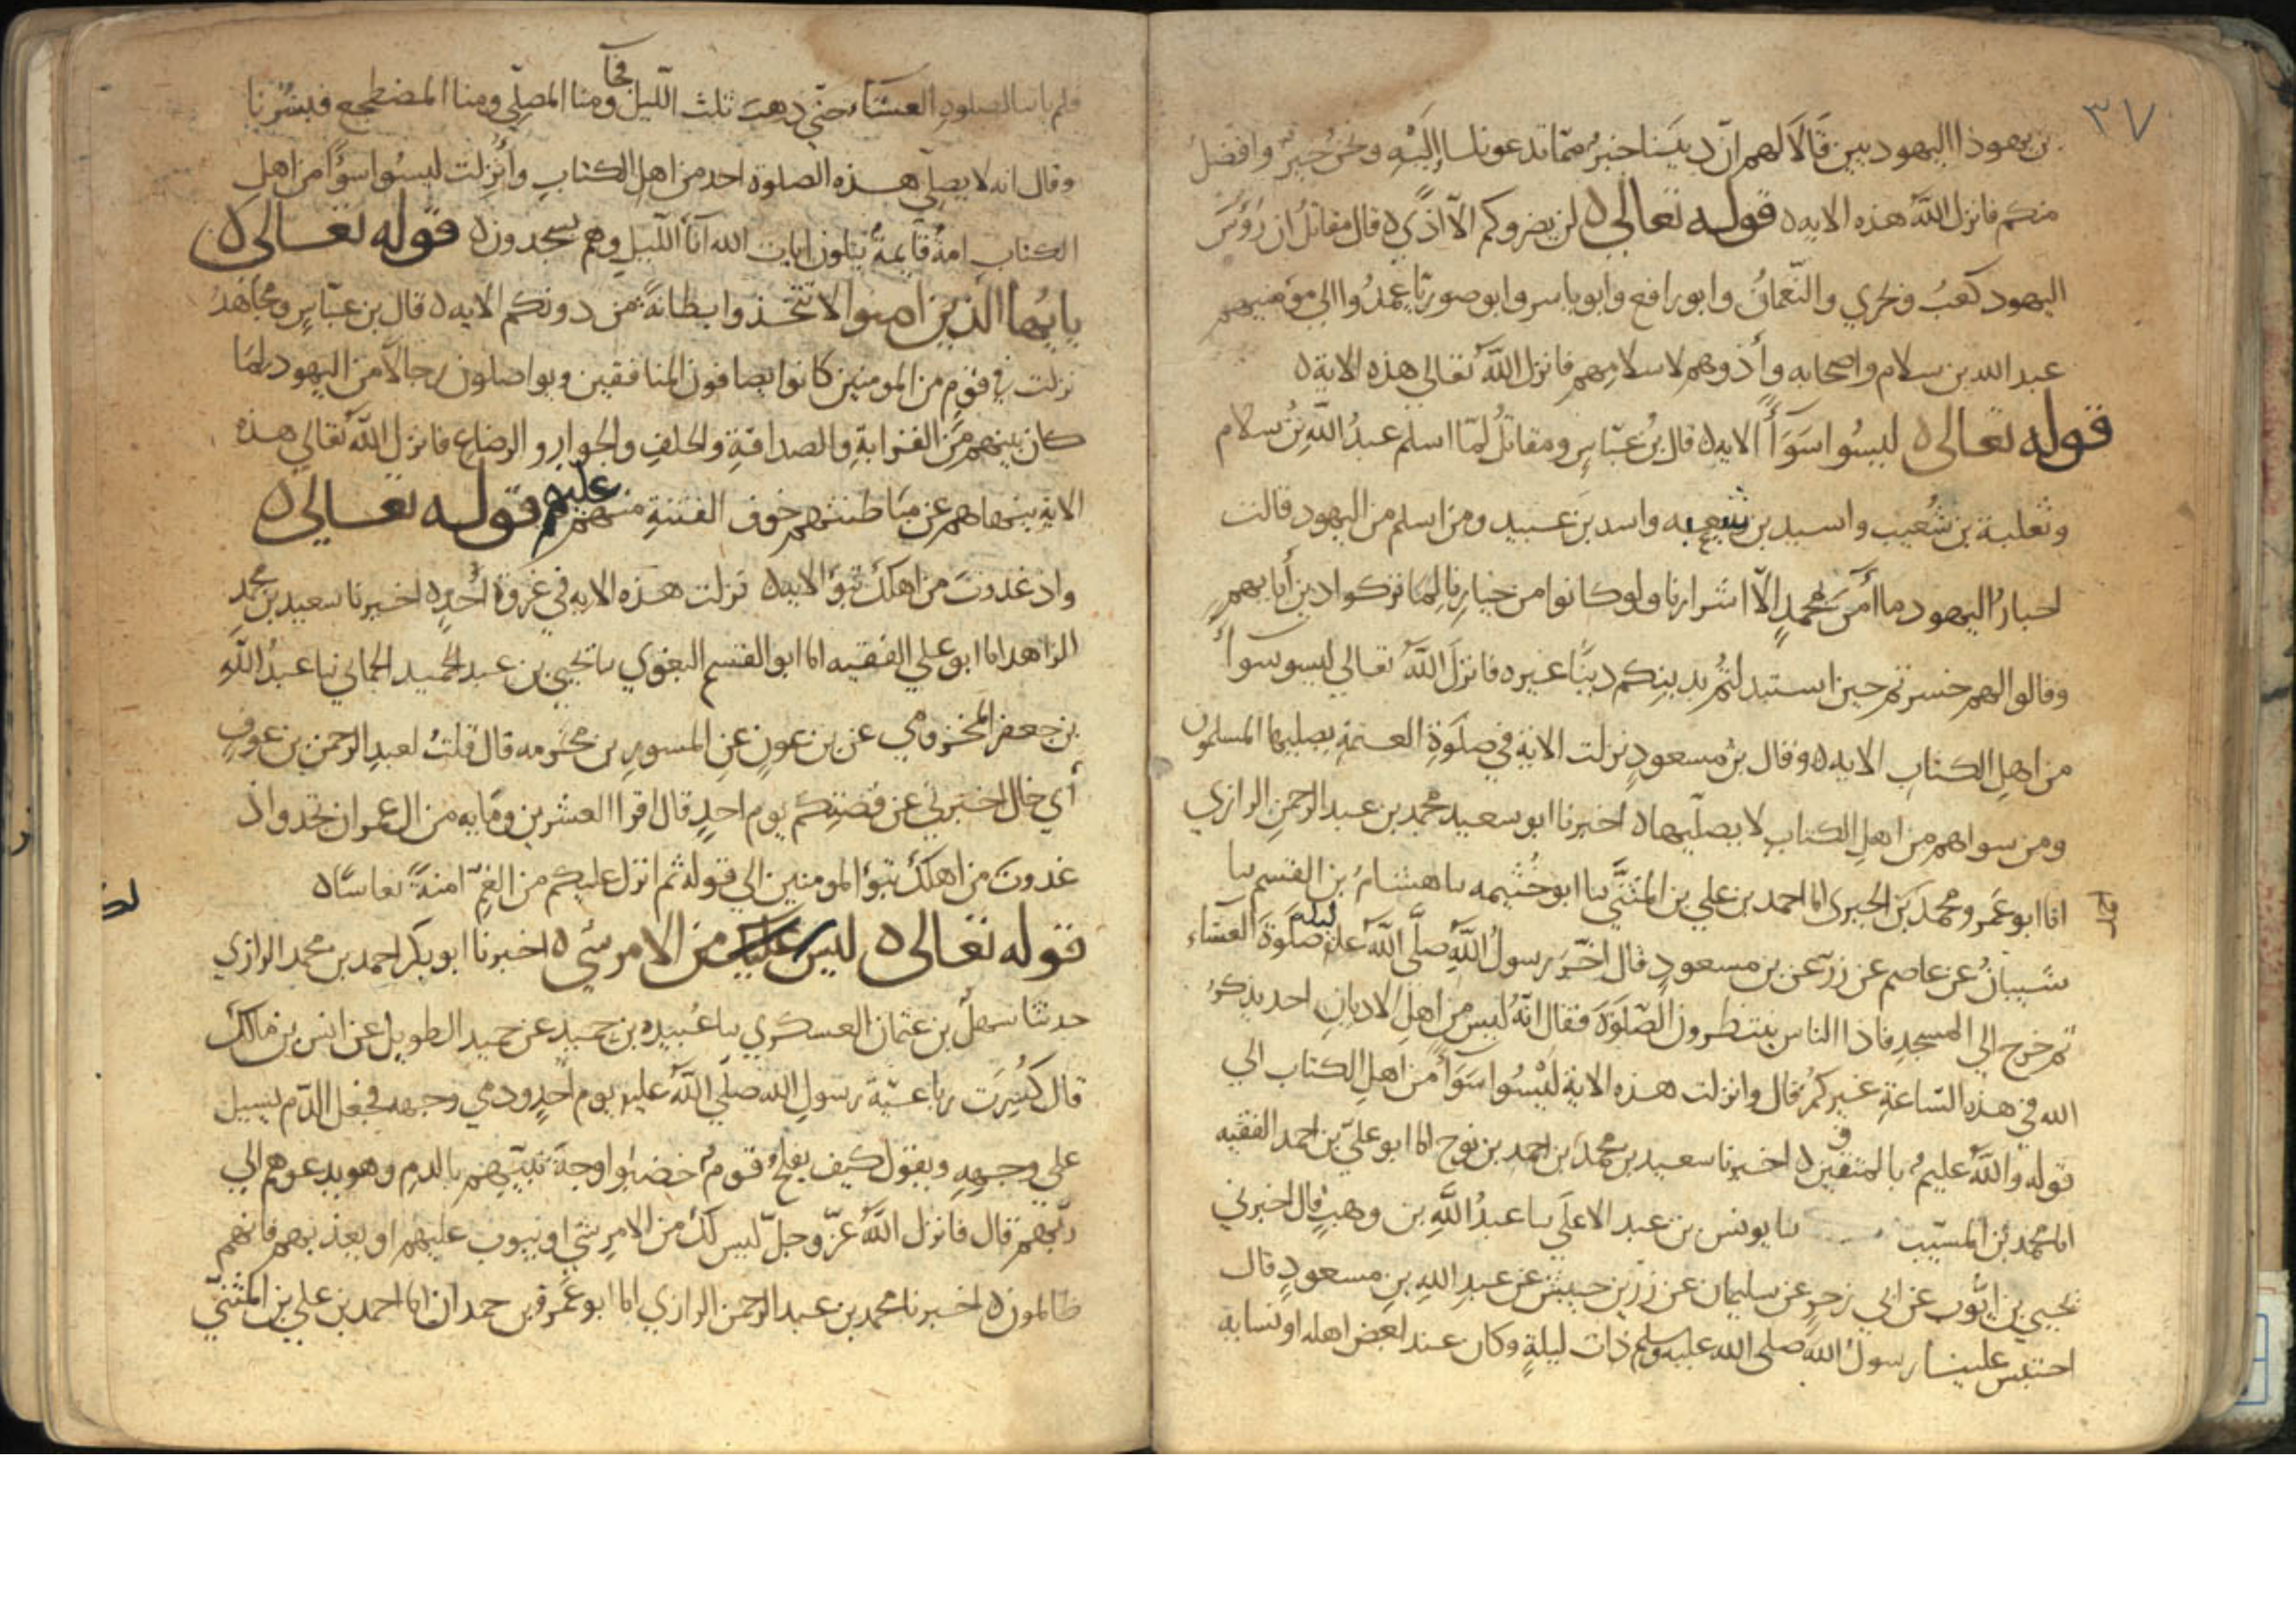 ٣٧
بن يهوذا اليهوديين قالا لهم ان ديننا خير مما تدعوننا اليه ونحن خير وافضل
منكم فانزل الله هذه الايه ه قوله تعالى ه لن يضروكم الا اذي ه قال مقاتل ان رؤس
اليهود كعب وبحري والنعمان وابو رافع وابو ياسر وابو صوريا عمدوا الي مومنيهم
عبد الله بن سلام واصحابه وأذوهم لاسلامهم فانزل الله تعالى هذه الاية ه
قوله تعالى ه ليسوا سوأ الايه ه قال بن عباس ومقاتل لما اسلم عبد الله بن سلام
وثعلبة بن شعيب واسيد بن شعيه واسد بن عبيد ومن اسلم من اليهود قالت
احبار اليهود ما امن بمحمد الا اشرارنا ولو كانوا من خيارنا لما تركوا دين أبايهم
وقالوا لهم خسرتم حين استبدلتم بدينكم دينا غيره فانزل الله تعالي ليسو سوأ
من اهل الكتاب الايه ه وقال بن مسعود نزلت الاية في صلوة العتمة يصليها المسلمون
ومن سواهم من اهل الكتاب لا يصليها ه اخبرنا ابو سعيد محمد بن عبد الرحمن الرازي
انا ابو عمرو محمد بن الحيري انا احمد بن علي بن المثني نا ابو خثيمه نا هشام بن القسم نا
شيبان عن عاصم عن زر عن بن مسعود قال اخر رسول الله صلى الله عليه ليلة صلوة العشاء
ثم خرج الي المسجد فاذا الناس ينتظرون الصلوة فقال انه ليس من اهل الاديان احد يذكر
الله في هذه الساعة غيركم قال وانزلت هذه الاية ليسوا سوأ من اهل الكتاب الي
قوله والله عليم بالمتقين ه اخبرنا سعيد بن محمد بن احمد بن نوح انا ابو علي بن احمد الفقيه
انا محمد بن المسيب نا يونس بن عبد الاعلى نا عبد الله بن وهب قال اخبرني
يحيي بن ايوب عن ابي زحر عن سليمان عن زر بن حبيش عن عبد الله بن مسعود قال
احتبس علينا رسول الله صلى الله عليه وسلم ذات ليلة وكان عند بعض اهله او نسايه
فلم ياتنا لصلوة العشاء حتي ذهب ثلث الليل فجا ومنا المصلي ومنا المضطجع فبشرنا
وقال انه لا يصلي هذه الصلوة احد من اهل الكتاب وأنزلت ليسوا سوأ من اهل
الكتاب امة قايمة يتلون ايات الله آنأ الليل وهم يسجدون ه قوله تعالى ه
يايها الذين امنوا لا تتخذوا بطانة من دونكم الايه ه قال بن عباس ومجاهد
نزلت في قوم من المومنين كانوا يصافون المنافقين ويواصلون رجالا من اليهود لما
كان بينهم من القرابة والصداقة والحلف والجوار والرضاع فانزل الله تعالي هذه
الاية ينهاهم عن مباطنتهم خوف الفتنة منهم عليهم قوله تعالى ه
واذ غدوت من اهلك تبؤ الايه ه نزلت هذه الايه في غزوة أحد ه اخبرنا سعيد بن محمد
الزاهد انا ابو علي الفقيه انا ابو القسم البغوي نا يحيي بن عبد الحميد الحماني نا عبد الله
بن جعفر المخزومي عن بن عون عن المسور بن مخرمه قال قلت لعبد الرحمن بن عوف
أي خال اخبرني عن قصتكم يوم احد قال اقرا العشرين ومايه من ال عمران تجد واذ
غدوت من اهلك تبؤ المومنين الي قوله ثم انزل عليكم من الغم امنة نعاسا ه
قوله تعالى ه ليس من الامر شي ه اخبرنا ابو بكر احمد بن محمد الرازي
لك
حدثنا سهل بن عثمان العسكري نا عبيده بن حميد عن حميد الطويل عن انس بن مالك
قال كسرت رباعية رسول الله صلى الله عليه يوم أحد ودمي وجهه فجعل الدم يسيل
علي وجهه ويقول كيف يفلح قوم خضبوا وجه نبيهم بالدم وهو يدعوهم الي
ربهم قال فانزل الله عز وجل ليس لك من الامر شي او يتوب عليهم او يعذبهم فانهم
ظالمون ه اخبرنا محمد بن عبد الرحمن الرازي انا ابو عمرو بن حمدان انا احمد بن علي بن المثني